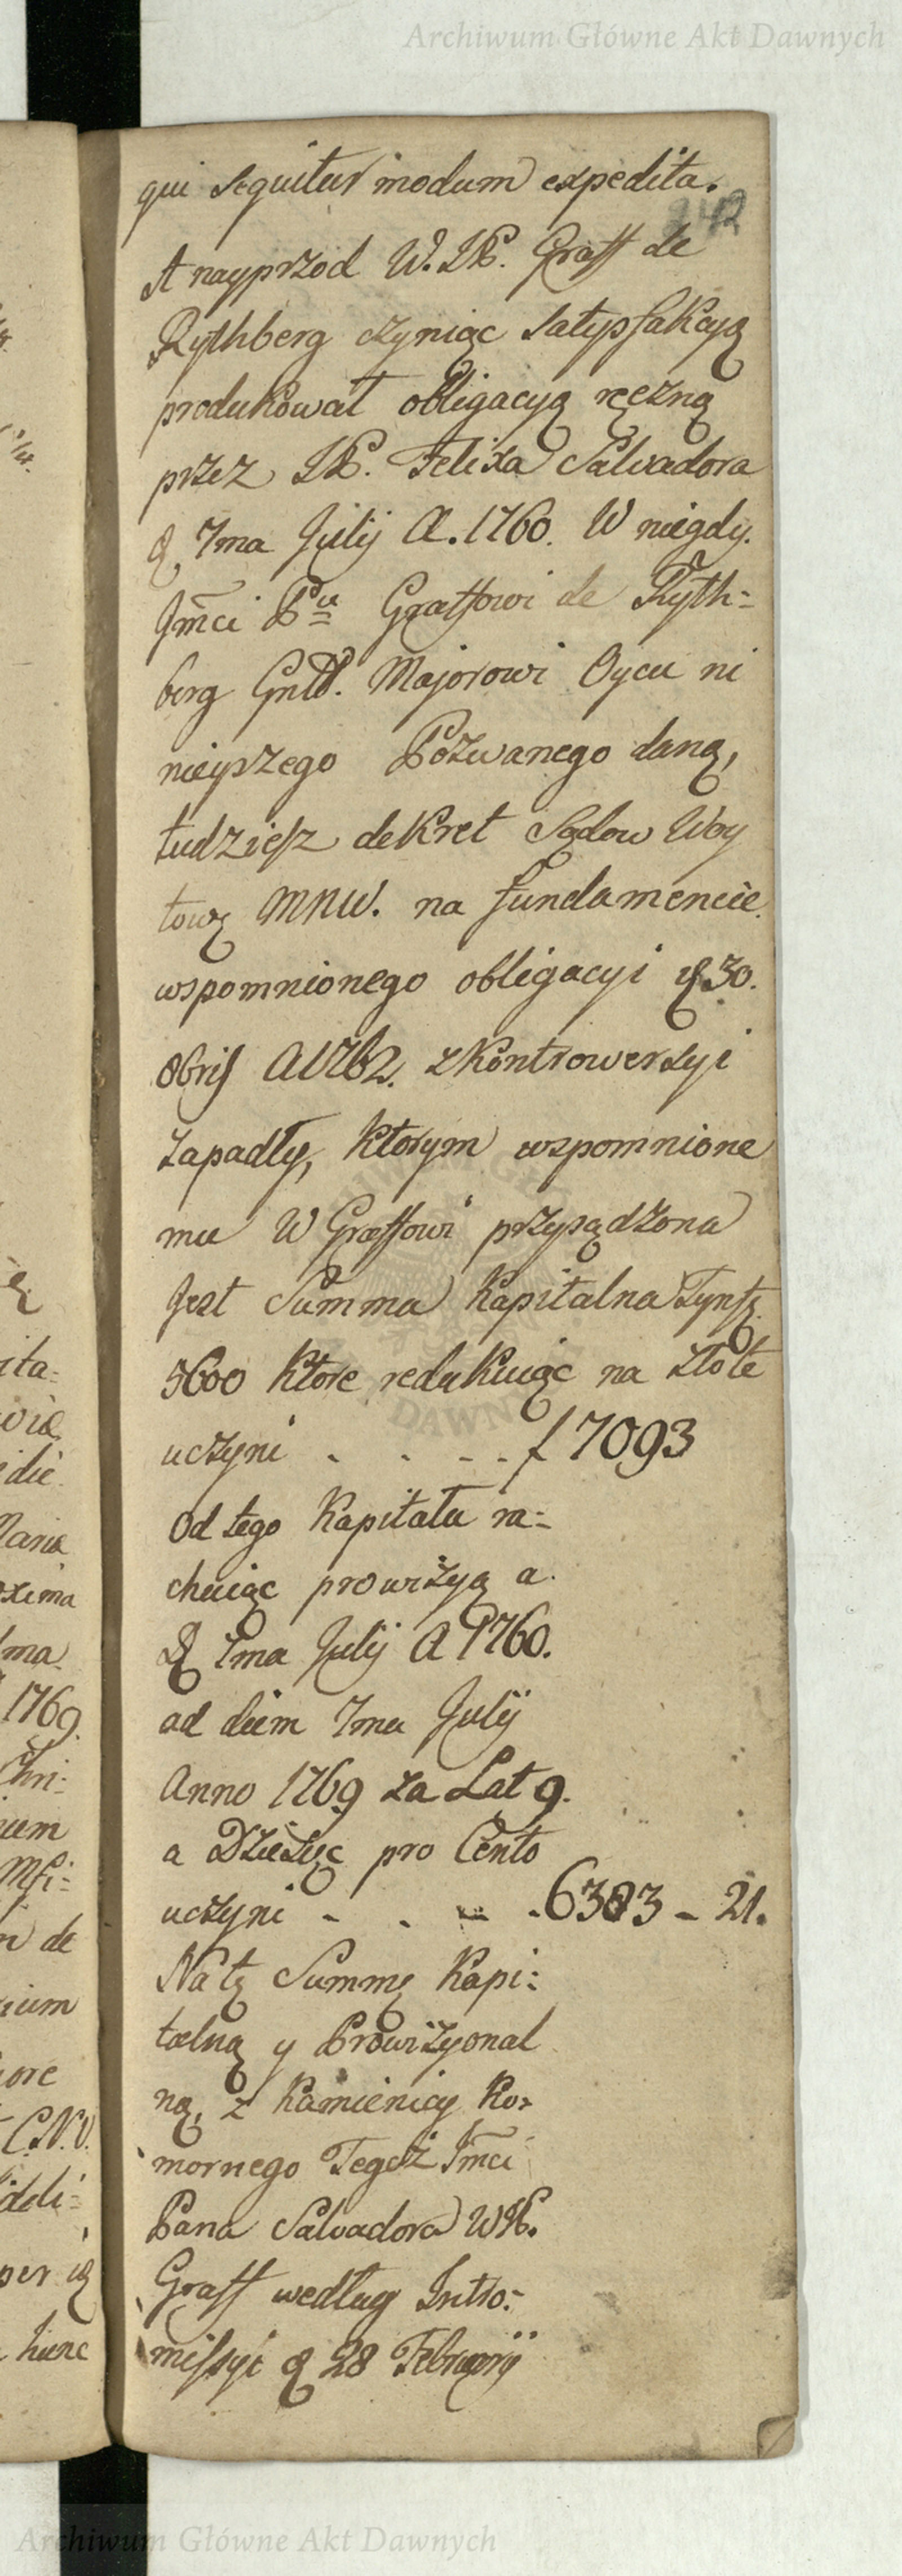 Archiwum Główne Akt Dawnych
qui sequitur modum expedita.
242
A nayprzod W. JP. Graff de
Rythberg czyniąc satysfakcyą
produkował obligacyą ręczną
przez JP. Felixa Salvadora
d. 7ma Julij A. 1760. W niegdy.
Jmci Pu Graffowi de Ryth=
berg Gnlł. Majorowi Oycu ni
nieyszego Pozwanego daną,
tudziesz dekret Sądow Woy
towę MNW. na fundamencie
wspomnionego obligacyi d 30.
8bris A 1762. z kontrowersyi
zapadły, ktorym wspomnione
mu W Graffowi przysądzona
Jest Summa Kapitalna Tynf.
5600 ktore redukuiąc na złote
uczyni - - - - f 7093
Od tego Kapitału ra=
chuiąc prowizyą a.
d 7ma Julij A 1760.
ad diem 7ma Julij
Anno 1769 za Lat 9.
a Dziesięc pro Cento
uczyni - - - - 6383 - 21.
Na tę Summę Kapi=
talną y Prowizyonal
ną, z Kamienicy Ko=
mornego Tegoż Jmci
Pana Salvadora WJP.
Graff według Intro=
missyi d 28 Februarij
ita=
die
Maria
oxima
1769.
Chri=
de
ore
C.N.V.
hunc
Archiwum Główne Akt Dawnych